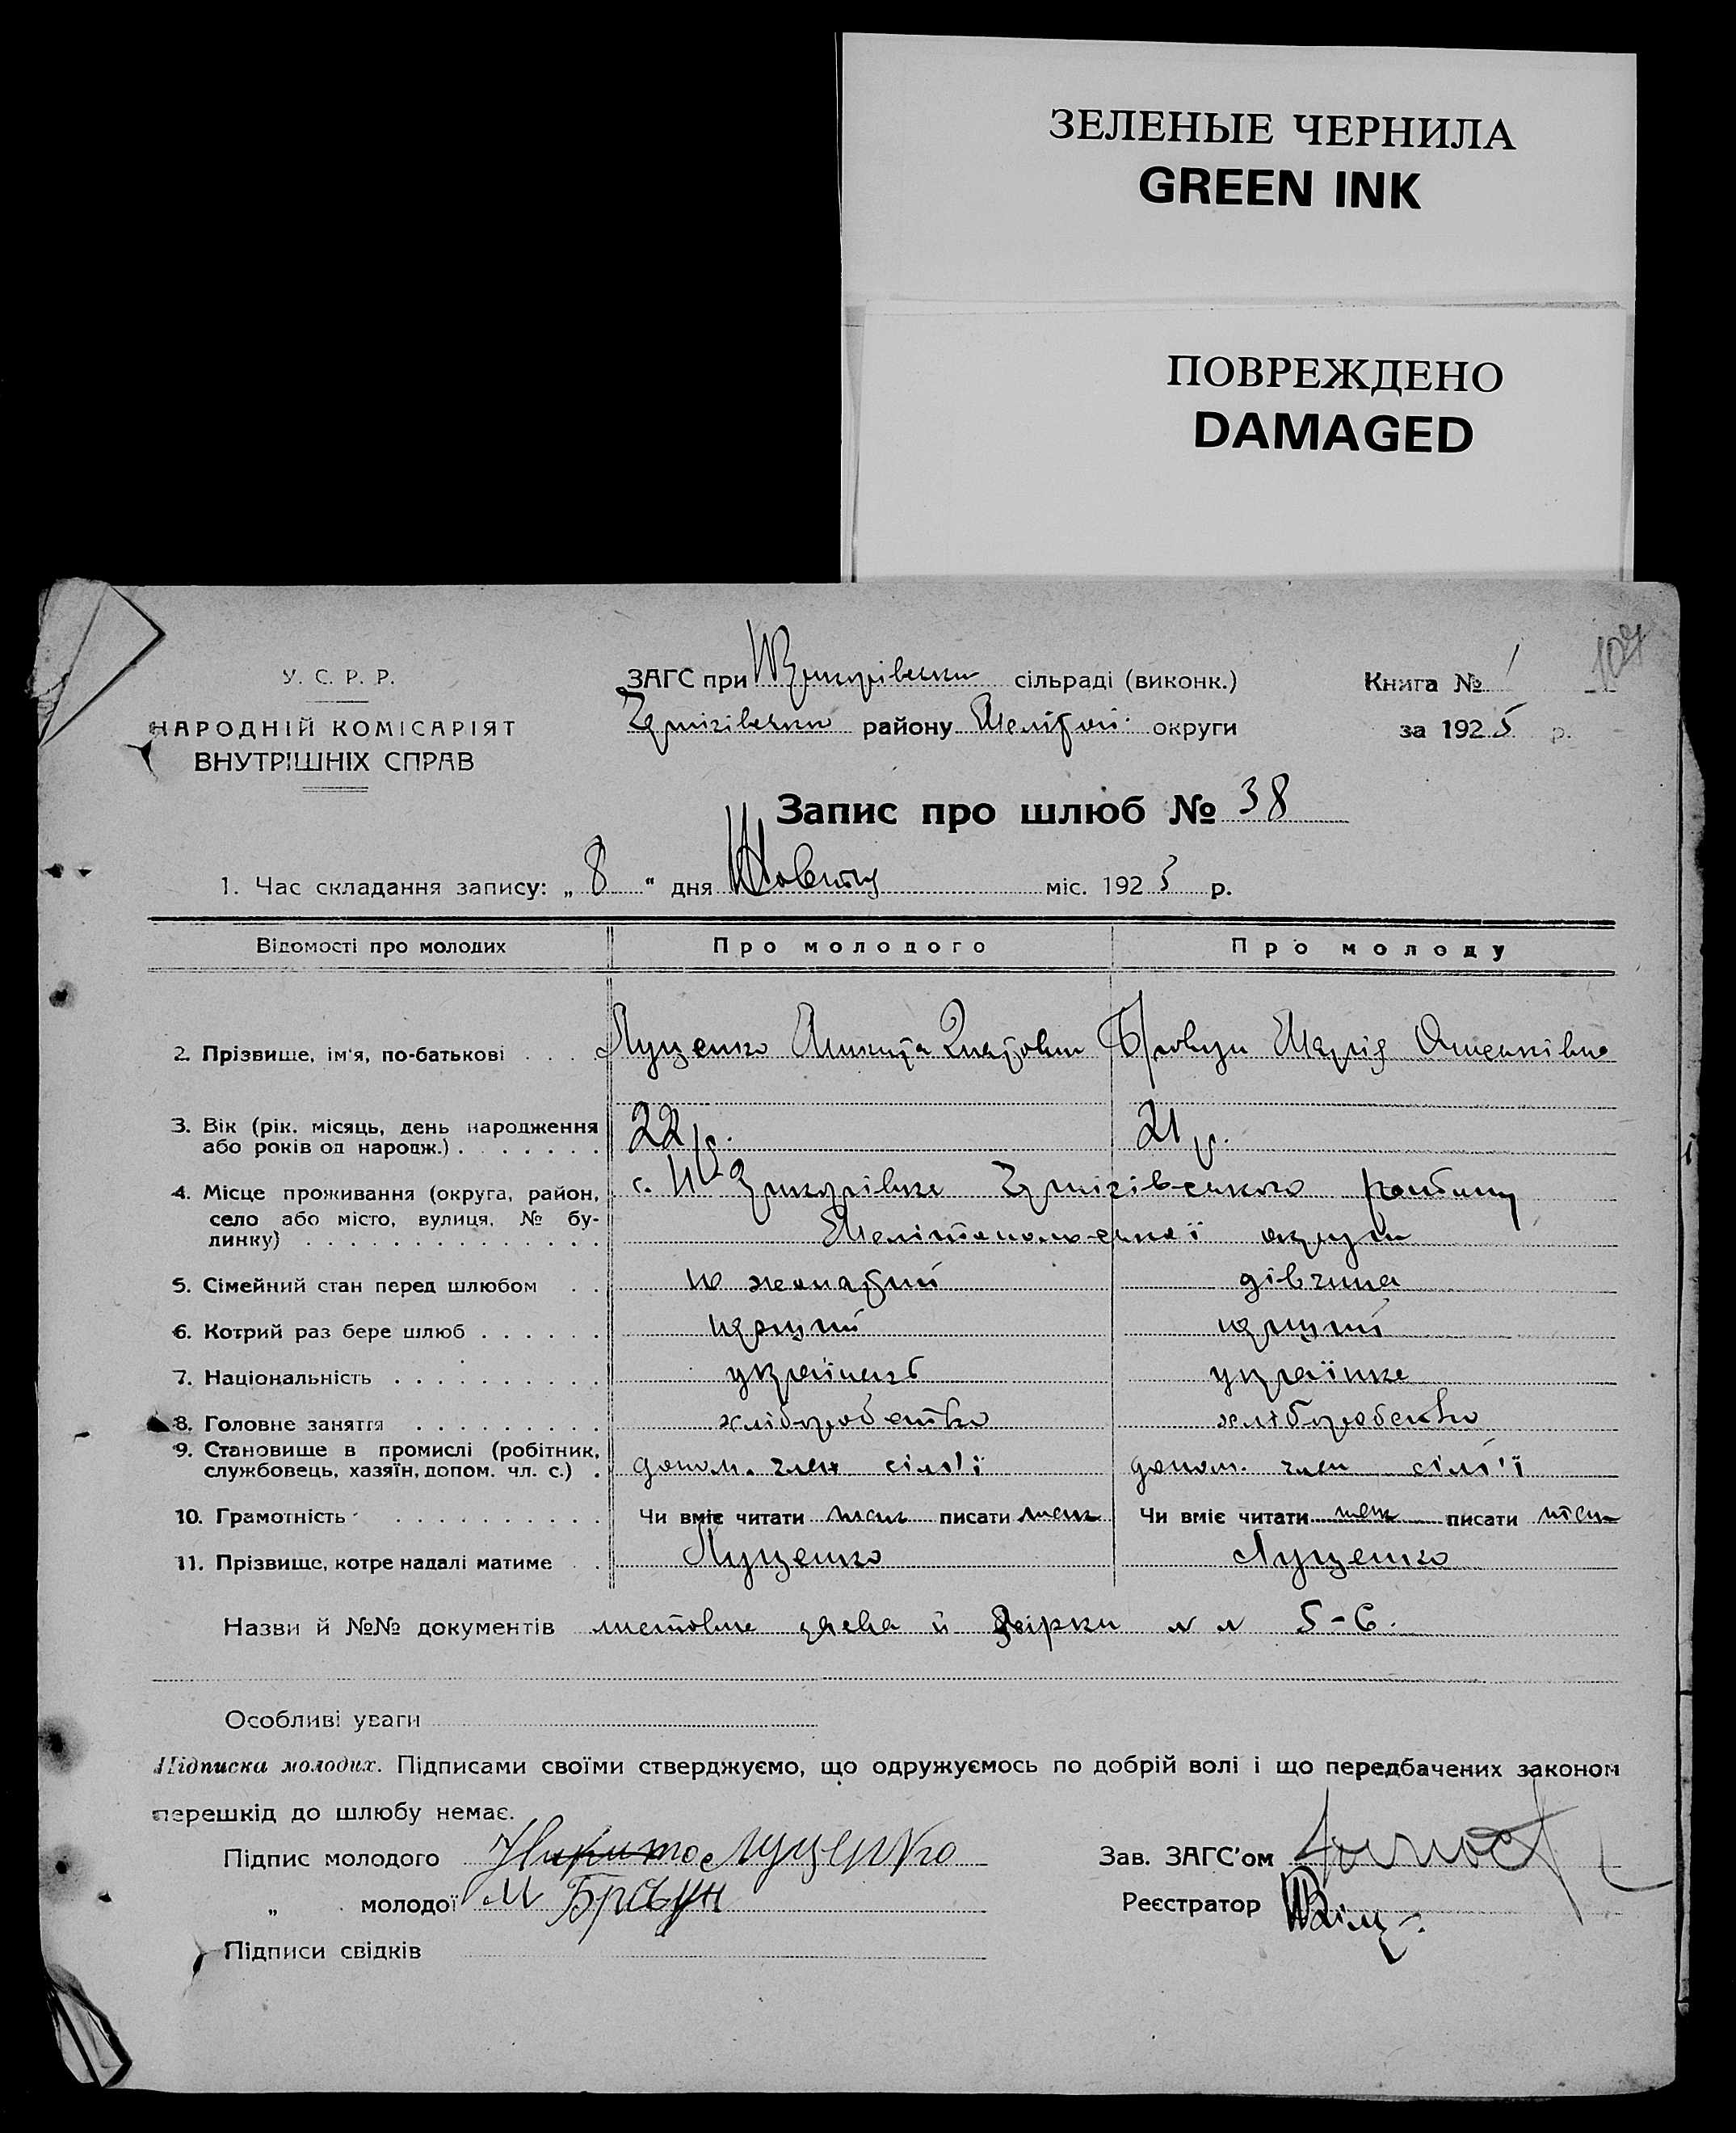 ЗЕЛЕНЫЕ ЧЕРНИЛА
GREEN INK
ПОВРЕЖДЕНО
DAMAGED
У. С. Р. Р.
НАРОДНІЙ КОМІСАРІЯТ
ВНУТРІШНІХ СПРАВ
ЗАГС при сільраді (виконк.)
району округи
Книга № 1
за 1925 р.
Запис про шлюб № 38
1. Час складання запису: „ 8 “ дня Жовтня міс. 1925 р.
Відомості про молодих Про молодого Про молоду
2. Прізвище, ім'я, по-батькові . . . Луценко Микита Браун Марія
3. Вік (рік. місяць, день народження 22 р. 21 р.
або років од народж.) . . . . . . .
4. Місце проживання (округа, район, с. району
село або місто, вулиця, № бу- Мелітопольської округи
динку) . . . . . . . . . . . . . .
5. Сімейний стан перед шлюбом . . не жонатий дівчина
6. Котрий раз бере шлюб . . . . . . перший перший
7. Національність . . . . . . . . . . українець українка
8. Головне заняття . . . . . . . . . хліборобство хліборобство
9. Становище в промислі (робітник, допом. член сім'ї допом. член сім'ї
службовець, хазяїн, допом. чл. с.) .
10. Грамотність . . . . . . . . . . Чи вміє читати так писати так Чи вміє читати так писати так
11. Прізвище, котре надалі матиме . . Луценко Луценко
Назви й №№ документів заява й 5-6.
Особливі уваги
Підписка молодих. Підписами своїми стверджуємо, що одружуємось по добрій волі і що передбачених законом
перешкід до шлюбу немає.
Підпис молодого Никита Луценко Зав. ЗАГС'ом
„ молодої М Браун Реєстратор
Підписи свідків